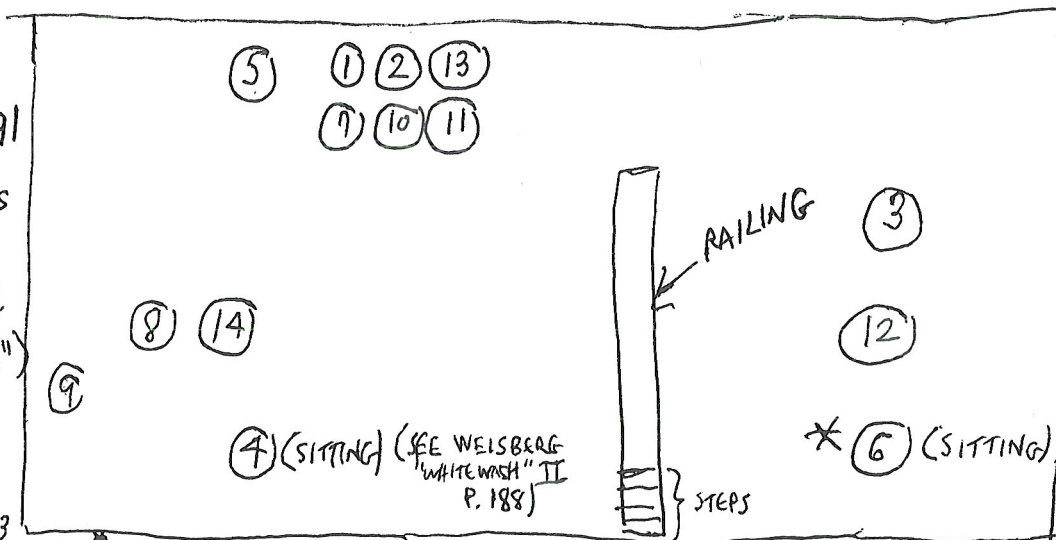 5 1 2 13
91
7 10 11
s
RAILING
3
8 14
12
"
9
4 (SITTING) (SEE WEISBERG
"WHITEWASH" II
P. 188)
* 6 (SITTING)
STEPS
3